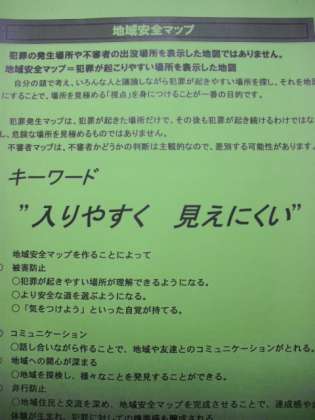 地域安全マップ
犯罪の発生場所や不審者の出没場所を表示した地図ではありません。
地域安全マップ＝犯罪が起こりやすい場所を表示した地図
自分の頭で考え、いろんな人と議論しながら犯罪が起きやすい場所を探し、それを地図
にすることで、場所を見極める「視点」を身につけることが一番の目的です。
犯罪発生マップは、犯罪が起きた場所だけで、その後も犯罪が起き続けるわけではな
し、危険な場所を見極めるものではありません。
不審者マップは、不審者かどうかの判断は主観的なので、差別する可能性があります。
キーワード
”入りやすく　見えにくい”
地域安全マップを作ることによって
○ 被害防止
○犯罪が起きやすい場所が理解できるようになる。
○より安全な道を選ぶようになる。
○「気をつけよう」といった自覚が持てる。
○ コミュニケーション
○話し合いながら作ることで、地域や友達とのコミュニケーションがとれる。
○ 地域への関心が深まる
○地域を探検し、様々なことを発見することができる。
○ 非行防止
○地域住民と交流を深め、地域安全マップを完成させることで、達成感や
体験が生まれ、犯罪に対しての